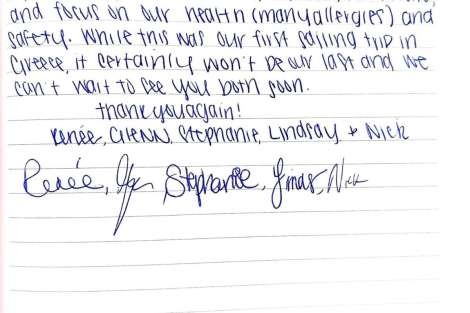 and focus on our health (many allergies) and
safety. While this was our first sailing trip in
Greece, it certainly won't be our last and we
can't wait to see you both soon.
thank you again!
Renée, GlENN, Stephanie, Lindsay + Nick
Renée, Stephanie, Nick